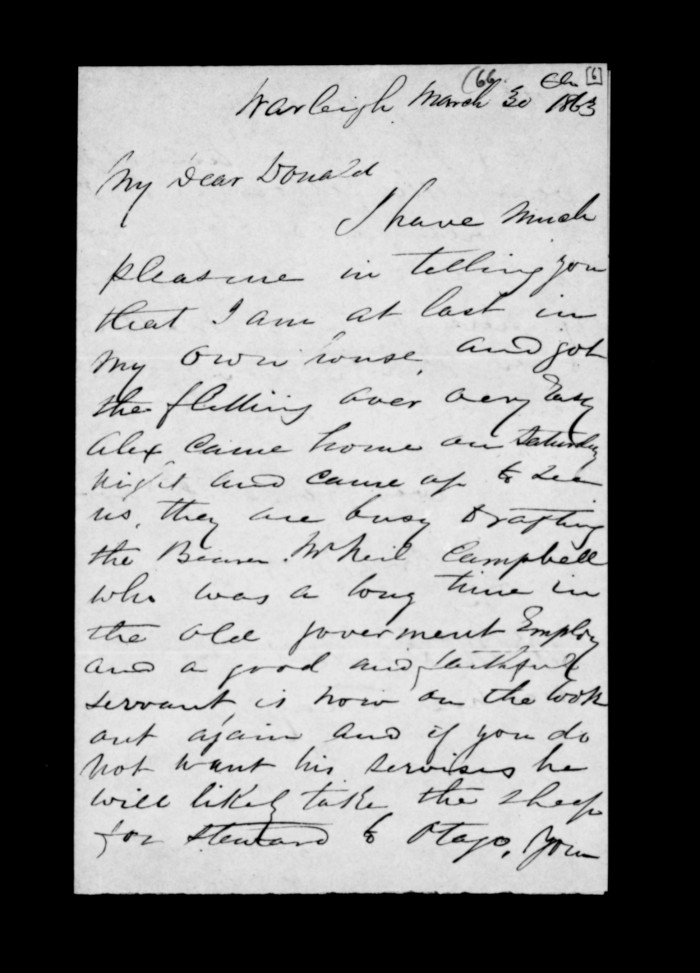 (66. [6]
Warleigh March 30 1863
My Dear Donald
I have much
pleasure in telling you
that I am at last in
my own house, and got
the flitting over very Easy
Alex came home on Saturday
night and came up to see
us, they are busy Drafting
the Bearer Mr Neil Campbell
who was a long time in
the old goverment Employ
and a good and faithfull
servant is now on the look
out again and if you do
not want his servises he
will likely take the sheep
for Steward to Otago, You